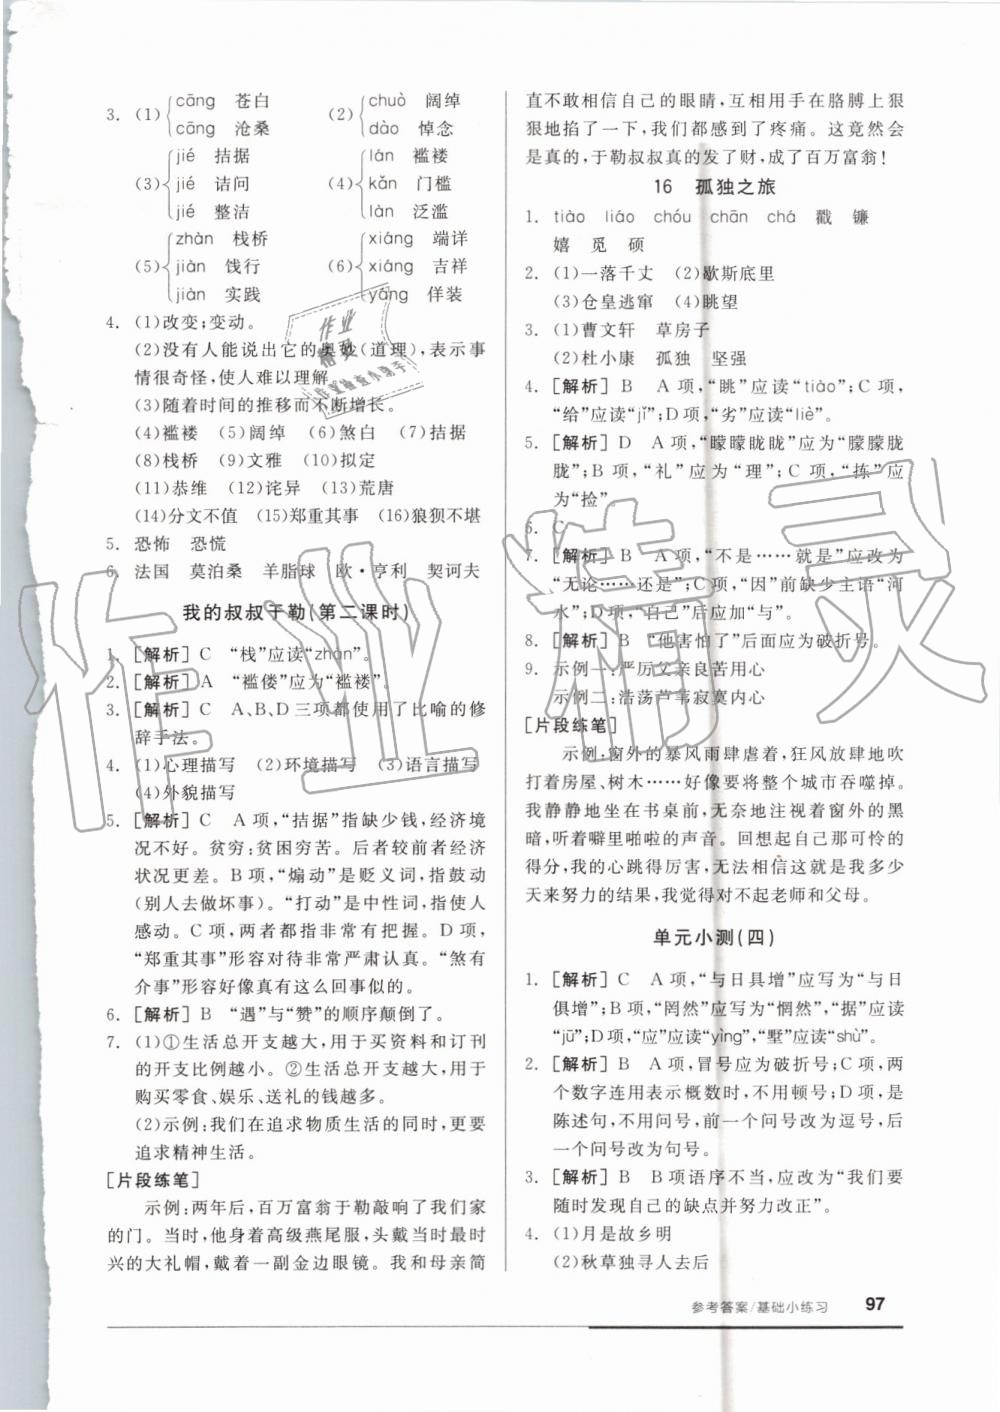 3. (1) cāng 苍白
cāng 沧桑
(2) chuò 阔绰
dào 悼念
(3) jié 拮据
jié 诘问
jié 整洁
(4) lán 褴褛
kǎn 门槛
làn 泛滥
(5) zhàn 栈桥
jiàn 饯行
jiàn 实践
(6) xiáng 端详
xiáng 吉祥
yáng 佯装
4. (1)改变;变动。
(2)没有人能说出它的奥妙(道理),表示事
情很奇怪,使人难以理解
(3)随着时间的推移而不断增长。
(4)褴褛 (5)阔绰 (6)煞白 (7)拮据
(8)栈桥 (9)文雅 (10)拟定
(11)恭维 (12)诧异 (13)荒唐
(14)分文不值 (15)郑重其事 (16)狼狈不堪
5. 恐怖 恐慌
6. 法国 莫泊桑 羊脂球 欧·亨利 契诃夫
我的叔叔于勒(第二课时)
1. [解析] C “栈”应读“zhàn”。
2. [解析] A “褴偻”应为“褴褛”。
3. [解析] C A、B、D三项都使用了比喻的修
辞手法。
4. (1)心理描写 (2)环境描写 (3)语言描写
(4)外貌描写
5. [解析] C A项,“拮据”指缺少钱,经济境
况不好。贫穷:贫困穷苦。后者较前者经济
状况更差。B项,“煽动”是贬义词,指鼓动
(别人去做坏事)。“打动”是中性词,指使人
感动。C项,两者都指非常有把握。D项,
“郑重其事”形容对待非常严肃认真。“煞有
介事”形容好像真有这么回事似的。
6. [解析] B “遇”与“赞”的顺序颠倒了。
7. (1)①生活总开支越大,用于买资料和订刊
的开支比例越小。②生活总开支越大,用于
购买零食、娱乐、送礼的钱越多。
(2)示例:我们在追求物质生活的同时,更要
追求精神生活。
[片段练笔]
示例:两年后,百万富翁于勒敲响了我们家
的门。当时,他身着高级燕尾服,头戴当时最时
兴的大礼帽,戴着一副金边眼镜。我和母亲简
直不敢相信自己的眼睛,互相用手在胳膊上狠
狠地掐了一下,我们都感到了疼痛。这竟然会
是真的,于勒叔叔真的发了财,成了百万富翁!
16 孤独之旅
1. tiào liáo chóu chān chá 戳 镰
嬉 觅 硕
2. (1)一落千丈 (2)歇斯底里
(3)仓皇逃窜 (4)眺望
3. (1)曹文轩 草房子
(2)杜小康 孤独 坚强
4. [解析] B A项,“眺”应读“tiào”;C项,
“给”应读“jǐ”;D项,“劣”应读“liè”。
5. [解析] D A项,“矇矇眬眬”应为“朦朦胧
胧”;B项,“礼”应为“理”;C项,“拣”应
为“捡”
6. C
7. [解析] B A项,“不是……就是”应改为
“无论……还是”;C项,“因”前缺少主语“河
水”;D项,“自己”后应加“与”。
8. [解析] B “他害怕了”后面应为破折号。
9. 示例一:严厉父亲良苦用心
示例二:浩荡芦苇寂寞内心
[片段练笔]
示例:窗外的暴风雨肆虐着,狂风放肆地吹
打着房屋、树木……好像要将整个城市吞噬掉。
我静静地坐在书桌前,无奈地注视着窗外的黑
暗,听着噼里啪啦的声音。回想起自己那可怜的
得分,我的心跳得厉害,无法相信这就是我多少
天来努力的结果,我觉得对不起老师和父母。
单元小测(四)
1. [解析] C A项,“与日具增”应写为“与日
俱增”;B项,“罔然”应写为“惘然”,“据”应读
“jū”;D项,“应”应读“yìng”,“墅”应读“shù”。
2. [解析] B A项,冒号应为破折号;C项,两
个数字连用表示概数时,不用顿号;D项,是
陈述句,不用问号,前一个问号改为逗号,后
一个问号改为句号。
3. [解析] B B项语序不当,应改为“我们要
随时发现自己的缺点并努力改正”。
4. (1)月是故乡明
(2)秋草独寻人去后
参考答案/基础小练习 97
作业精灵
作业
精灵